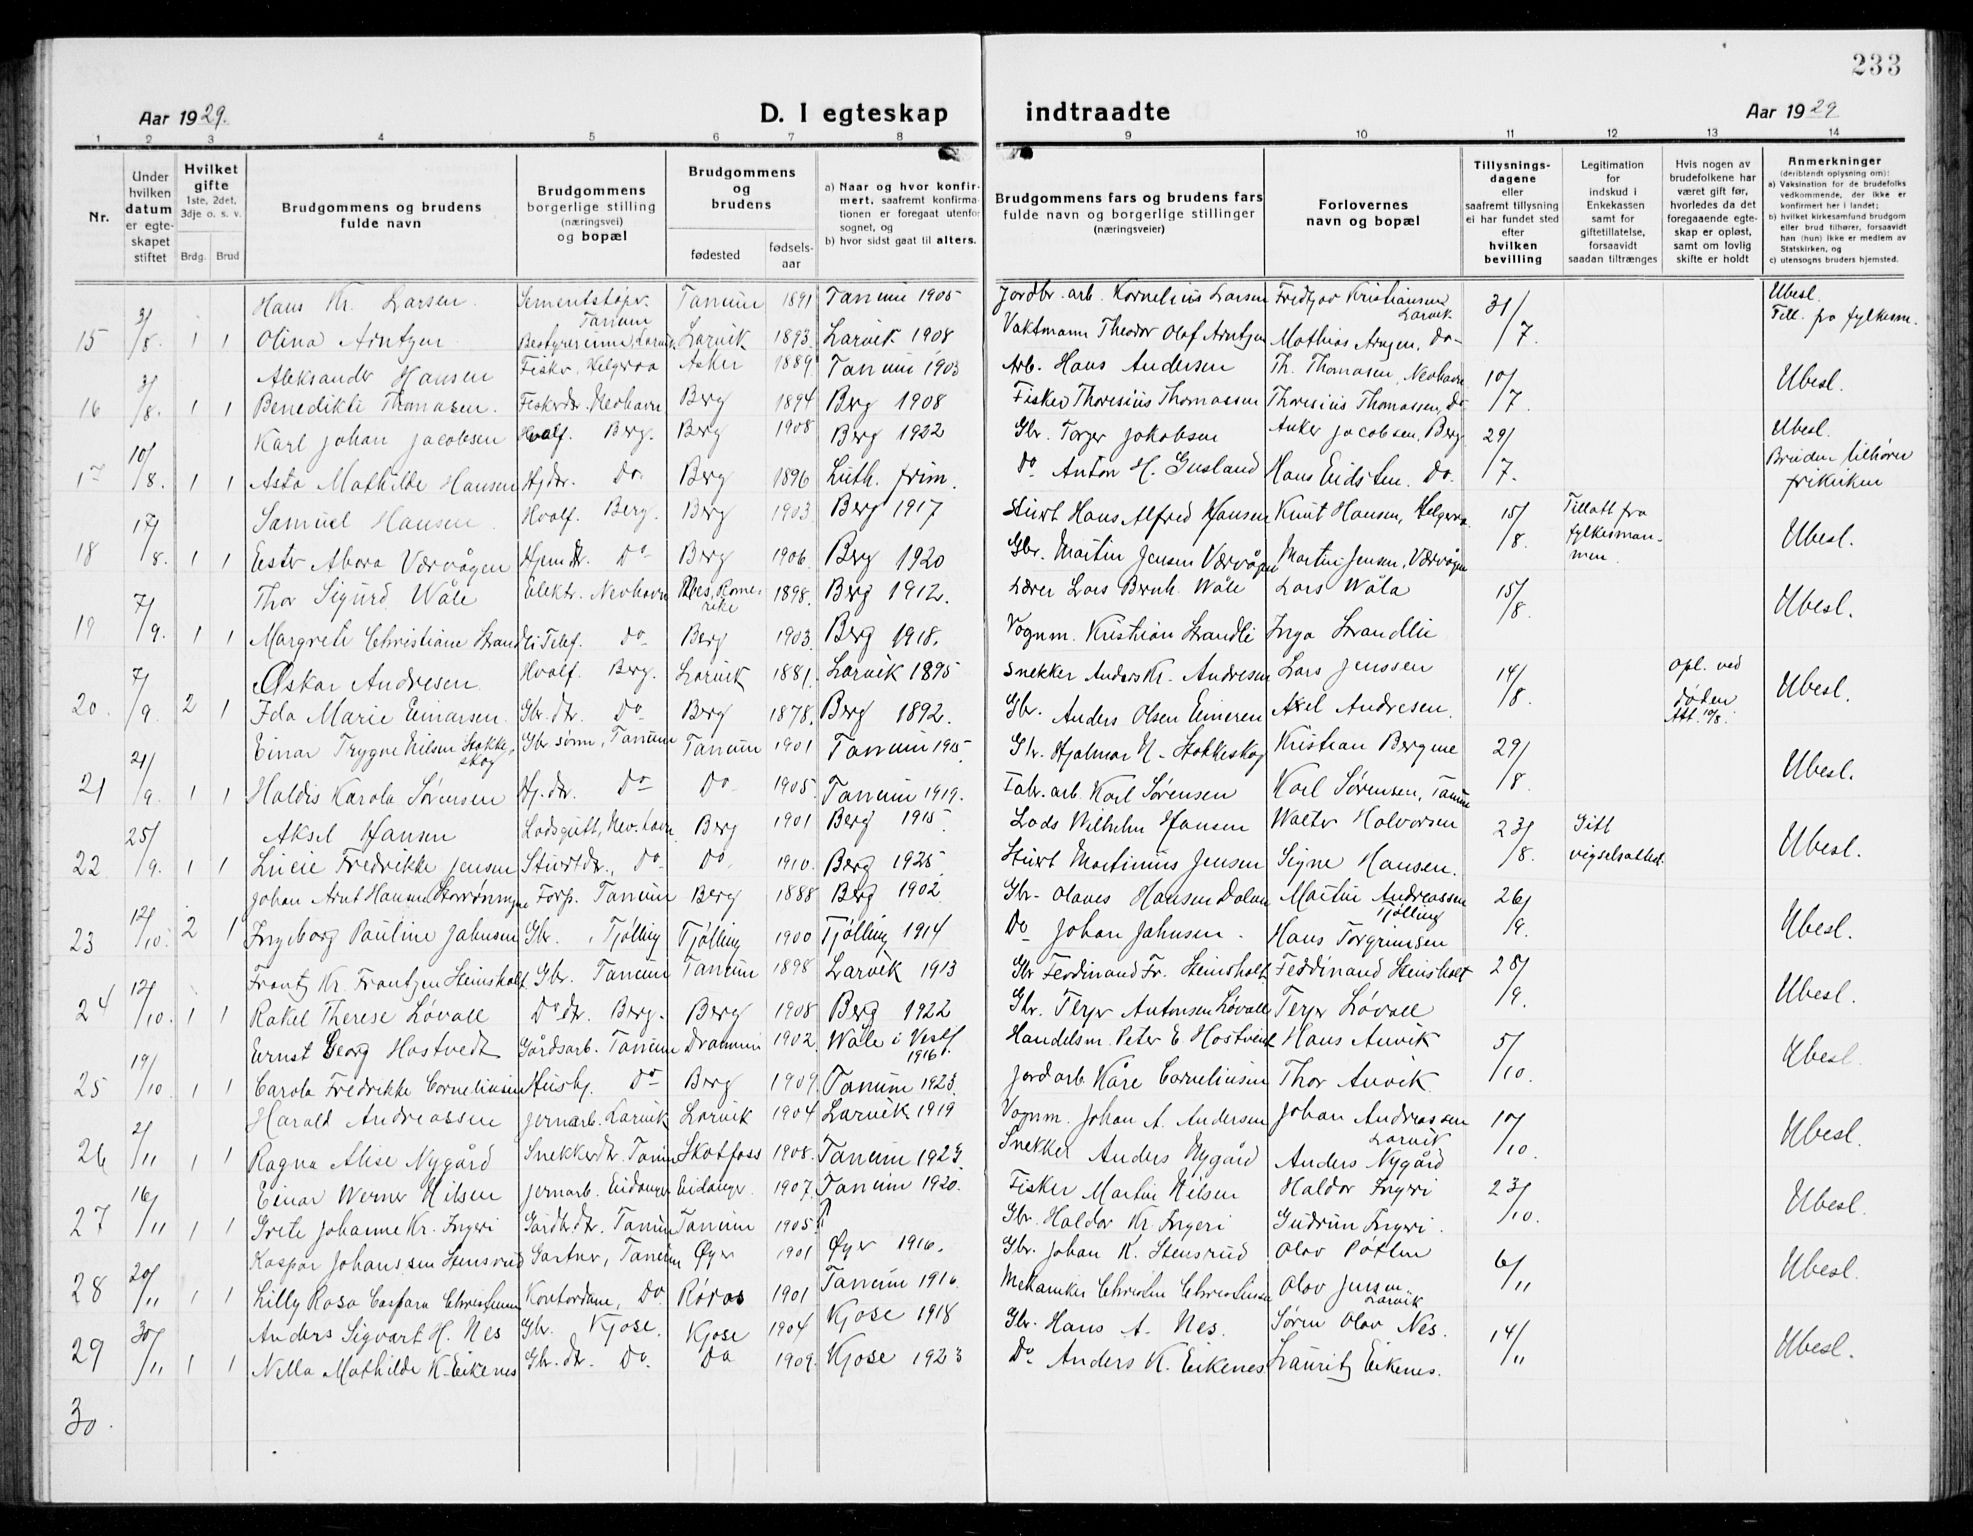 233
Aar 1929.
D. I egteskap
indtraadte
Aar 1929
1 2 3 4 5 6 7 8 9 10 11 12 13 14
Nr.
Under hvilken datum er egteskapet stiftet
Hvilket gifte 1ste, 2det, 3dje o. s. v.
Brdg. Brud
Brudgommens og brudens fulde navn
Brudgommens borgerlige stilling (næringsvei) og bopæl
Brudgommens og brudens
fødested fødselsaar
a) Naar og hvor konfirmert, saafremt konfirmationen er foregaat utenfor sognet, og
b) hvor sidst gaat til alters.
Brudgommens fars og brudens fars fulde navn og borgerlige stillinger (næringsveier)
Forlovernes navn og bopæl
Tillysningsdagene eller saafremt tillysning ei har fundet sted efter hvilken bevilling
Legitimation for indskud i Enkekassen samt for giftetillatelse, forsaavidt saadan tiltrænges
Hvis nogen av brudefolkene har været gift før, hvorledes da det foregaaende egteskap er opløst, samt om lovlig skifte er holdt
Anmerkninger (deriblandt oplysning om):
a) Vaksination for de brudefolks vedkommende, der ikke er konfirmert her i landet;
b) hvilket kirkesamfund brudgom eller brud tilhører, forsaavidt han (hun) ikke er medlem av Statskirken, og
c) utensogns bruders hjemsted.
Hans Kr. Larsen Sementstøper Tanum Tanum 1891 Tanum 1905 Jordbr. arb. Kornelius Larsen Fredtjov Kristiansen Larvik 31/7 Ubesl. Till. fra fylkesm.
15 3/8. 1 1 Olina Arntzen Bestyrerinne, Larvik Larvik 1893. Larvik 1908 Vaktmann Theodor Olaf Arntzen Mathias Do
Aleksander Hansen Fisker, Helgeroa Asker 1889 Tanum 1903 Arb. Hans Andersen Th. Thomasen, Nevlhavn 10/7 Ubesl.
16 3/8. 1 1 Benedikte Thomasen. Fiskerdr. Nevlhavn Berg 1894 Berg 1908 Fisker Thoresius Thomassen Thoresius Thomassen, Do
Karl Johan Jacobsen Hvalf. Berg. Berg 1908 Berg 1922 Gbr. Torger Jakobsen Anker Jacobsen, Berg 29/7. Ubesl.
17 10/8. 1 1 Asta Mathilde Hansen Hjdr. Do. Berg 1896 Luth. frim. Do Anton H. Gusland Hans Eidsten. Do. Bruden tilhører frikirken
Samuel Hansen Hvalf. Berg. Berg 1903 Berg 1917 Stuert Hans Alfred Hansen Knut Hansen, Helgeroa 15/8 Tillatt fra fylkesmannen. Ubesl.
18 17/8. 1 1 Ester Abora Værvågen Hjemdr. Do Berg 1906. Berg 1920 Gbr. Martin Jensen Værvågen Martin Jensen, Værvågen
Thor Sigurd Wåle Elektr. Nevlhavn Nes, Romerike 1898. Berg 1912. Lærer Lars Bernh. Wåle Lars Wåla 15/8. Ubesl.
19 7/9. 1 1 Margrete Christiane Strandli Telef. do Berg 1903. Berg 1918. Vognm. Kristian Strandli Inga Strandlie
Oskar Andresen Hvalf. Berg. Larvik 1881. Larvik 1895 Snekker Anders Kr. Andresen Lars Jenssen 14/8. Opl. ved døden Att. 10/8. Ubesl.
20. 7/9. 2 1 Ida Marie Einarsen. Gbr. dtr. Do Berg 1878. Berg 1892. Gbr. Anders Olsen Eineren Axel Andresen.
Einar Trygve Nilsen Stokkeskog Gbr sønn, Tanum Tanum 1901 Tanum 1915. Gbr. Hjalmar N. Stokkeskog Kristian Bergene 29/8. Ubesl.
21 21/9. 1 1 Haldis Karola Sørensen Hj. dtr. Do Do 1905. Tanum 1919. Fabr. arb. Karl Sørensen Karl Sørensen, Tanum
Aksel Hansen Losgutt, Nevlhavn Berg 1901 Berg 1915 Lods Wilhelm Hansen Walter Halvorsen 23/8. Gitt vigselsattest. Ubesl.
22 25/9. 1 1 Lucie Fredrikke Jensen Stuertdr., Do. Do. 1910. Berg 1925. Stuert Martinius Jensen Signe Hansen.
Johan Arnt Hansen Storrønningen Forp. Tanum Berg 1888 Berg 1902 Gbr. Olaves Hansen Dalen Martin Andreassen Tjølling 26/9. Ubesl.
23 12/10. 2 1 Ingeborg Pauline Jahnsen Gbr. , Tjølling Tjølling 1900 Tjølling 1914 Do Johan Jahnsen. Hans Torgrimsen
Frantz Kr. Frantzen Steinsholt Gbr. Tanum Tanum 1898 Larvik 1913 Gbr Ferdinand Fr. Steinsholt Ferdinand Steinsholt 28/9. Ubesl.
24 12/10. 1 1 Rakel Therese Løvall Do dr. Berg. Berg 1908 Berg 1922 Gbr. Terje Antonsen Løvall Terje Løvall
Ernst Georg Hostvedt Gårdsarb. Tanum Drammen 1902. Wåle i Vestf. 1916. Handelsm. Peter E Hostvedt Hans Anvik 5/10. Ubesl.
25 19/10. 1 1 Carola Fredrikke Corneliussen Husbg. Do Berg 1909. Tanum 1923. Jordarb. Kåre Corneliussen Thor Anvik
Harald Andreassen Jernarb. Larvik Larvik 1904 Larvik 1919 Vognm. Johan A. Andersen Johan Andreassen Larvik 10/10. Ubesl.
26 2/11 1 1 Ragna Alise Nygård Snekkerdtr. Tanum Skotfoss 1908. Tanum 1923. Snekker Anders Nygård Anders Nygård
Einar Werner Nilsen Jernarb. Eidanger Eidanger. 1907. Tanum 1920. Fisker Martin Nilsen Haldor Ingeri 23/10. Ubesl.
27 16/11 1 1 Grete Johanne Kr. Ingeri Gårdbr.dtr. Tanum Tanum 1905. ? Gbr. Haldor Kr. Ingeri Gudrun Ingeri.
Kaspar Johanssen Stensrud Gartner, Tanum Øyer 1901 Øyer 1916. Gbr. Johan K. Stensrud Olav Pøtten 6/11 Ubesl.
28 20/11 1 1 Lilly Rosa Caspara Christensen Kontordame, Do Røros 1901 Tanum 1916 Mekaniker Christen Christensen Olav Jensen Larvik
Anders Sigvart H. Nes Gbr. Kjose. Kjose 1904 Kjose 1918 Gbr. Hans A. Nes. Søren Olav Nes. 14/11 Ubesl.
29 30/11 1 1 Nella Mathilde K. Eikenes Gbr. dtr. Do. Do 1909. Kjose 1923 Do Anders K. Eikenes Lauritz Eikenes.
30.